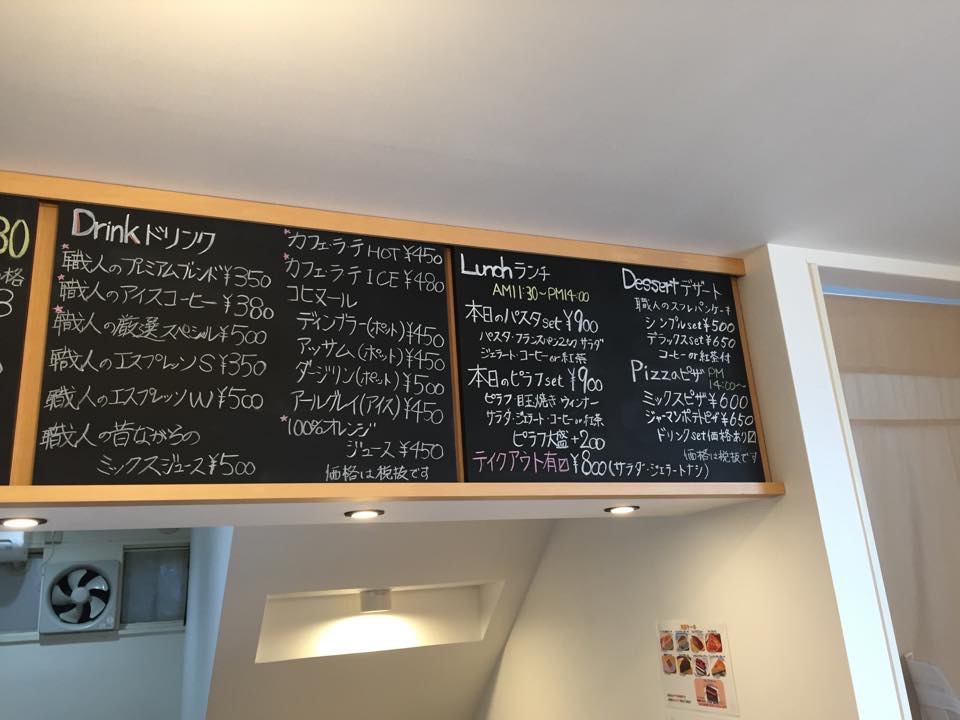 30
格
3
Drink ドリンク
職人のプレミアムブレンド ¥350
職人のアイスコーヒー ¥380
職人の厳選スペシャル ¥500
職人のエスプレッソS ¥350
職人のエスプレッソW ¥500
職人の昔ながらの
ミックスジュース ¥500
カフェ・ラテ HOT ¥450
カフェ・ラテ ICE ¥480
コヒヌール
ディンブラー(ポット) ¥450
アッサム(ポット) ¥450
ダージリン(ポット) ¥500
アールグレイ(アイス) ¥450
100%オレンジ
ジュース ¥450
価格は税抜です
Lunch ランチ
AM11:30~PM14:00
本日のパスタset ¥900
パスタ・フランスパン2コ・サラダ
ジェラート・コーヒーor紅茶
本日のピラフset ¥900
ピラフ・目玉焼き・ウィンナー
サラダ・ジェラート・コーヒーor紅茶
ピラフ大盛 +200
テイクアウト有 ¥800(サラダ・ジェラートナシ)
Dessert デザート
職人のスフレパンケーキ
シンプルset ¥500
デラックスset ¥650
コーヒーor紅茶付
Pizza ピザ PM
14:00~
ミックスピザ ¥600
ジャーマンポテトピザ ¥650
ドリンクset価格あり
価格は税抜です